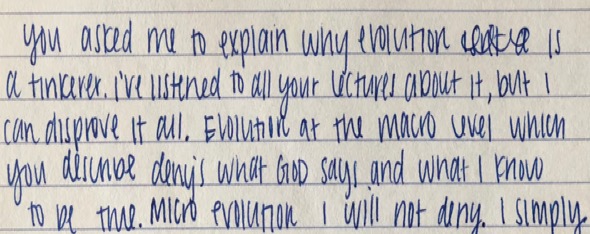 you asked me to explain why evolution is
a tinkerer. i've listened to all your lectures about it, but i
can disprove it all. Evolution at the macro level which
you describe deny's what GOD says and what I know
to be true. Micro evolution I will not deny. I simply